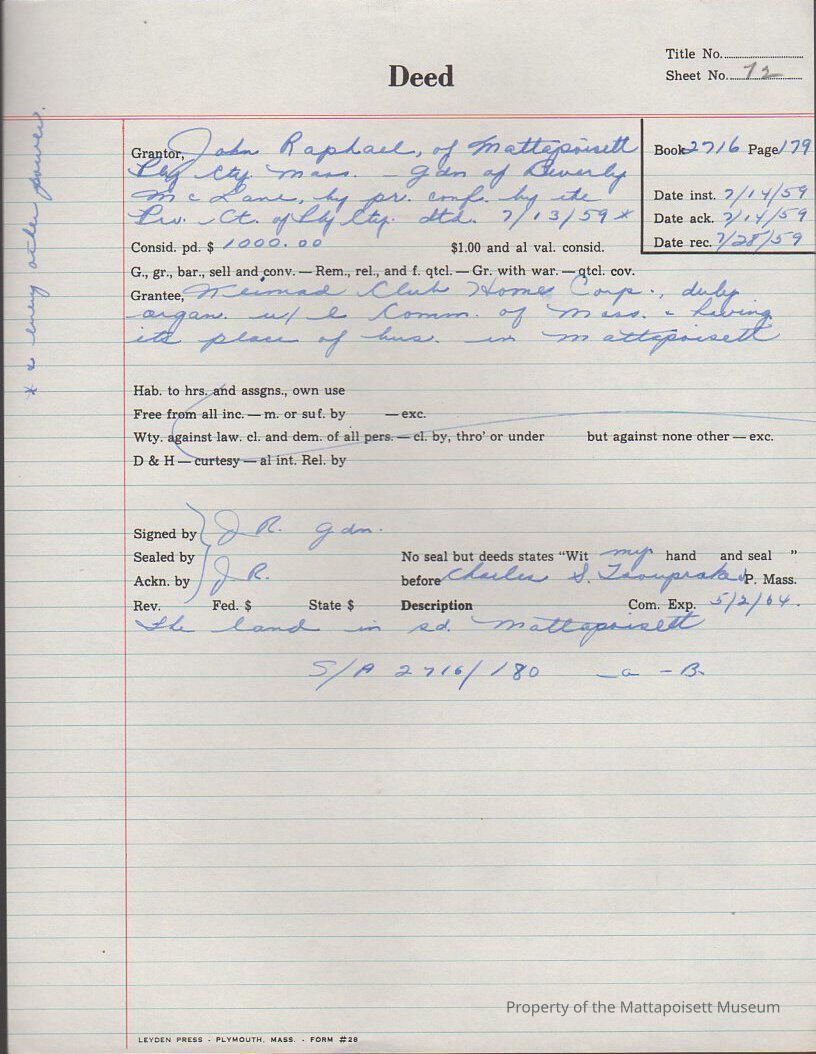 Title No.
Deed
Sheet No. 72
Grantor, John Raphael, of Mattapoisett
Book 2716 Page 179
Ply Cty. Mass. – Gdn of Beverly
McLane, by pr. conf. by the
Date inst. 7/14/59
Pro. Ct. of Ply Cty. dtd. 7/13/59 *
Date ack. 7/14/59
Date rec. 7/28/59
* & every other power.
Consid. pd. $ 1000.00 $1.00 and al val. consid.
G., gr., bar., sell and conv. — Rem., rel., and f. qtcl. — Gr. with war. — qtcl. cov.
Grantee, Club Homes Corp., duly
organ. u/l Comm. of Mass. & having
its place of bus. in Mattapoisett
Hab. to hrs. and assgns., own use
Free from all inc. — m. or suf. by — exc.
Wty. against law. cl. and dem. of all pers. — cl. by, thro' or under but against none other — exc.
D & H — curtesy — al int. Rel. by
Signed by J R. gdn.
Sealed by No seal but deeds states "Wit my hand and seal "
Ackn. by J. R. before Charles S. J.P. Mass.
Rev. Fed. $ State $ Description Com. Exp. 5/2/64.
The land in sd. Mattapoisett
S/A 2716/180 – a – B.
Property of the Mattapoisett Museum
LEYDEN PRESS - PLYMOUTH, MASS. - FORM #28